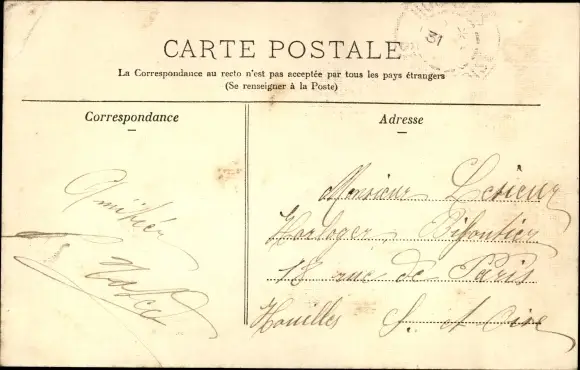 CARTE POSTALE
La Correspondance au recto n'est pas acceptée par tous les pays étrangers
(Se renseigner à la Poste)
Correspondance
Adresse
31
Amitiés
Monsieur Lesieur
Horloger Bijoutier
18 rue de Paris
Houilles S. et Oise